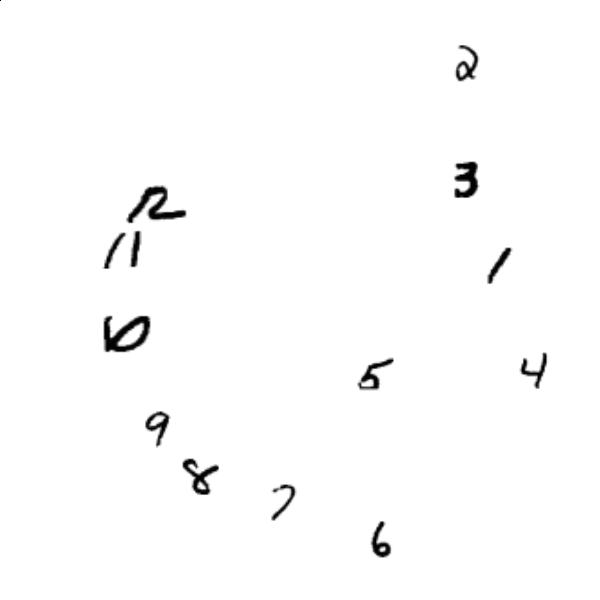 2
3
12
11
1
10
5
4
9
8
7
6